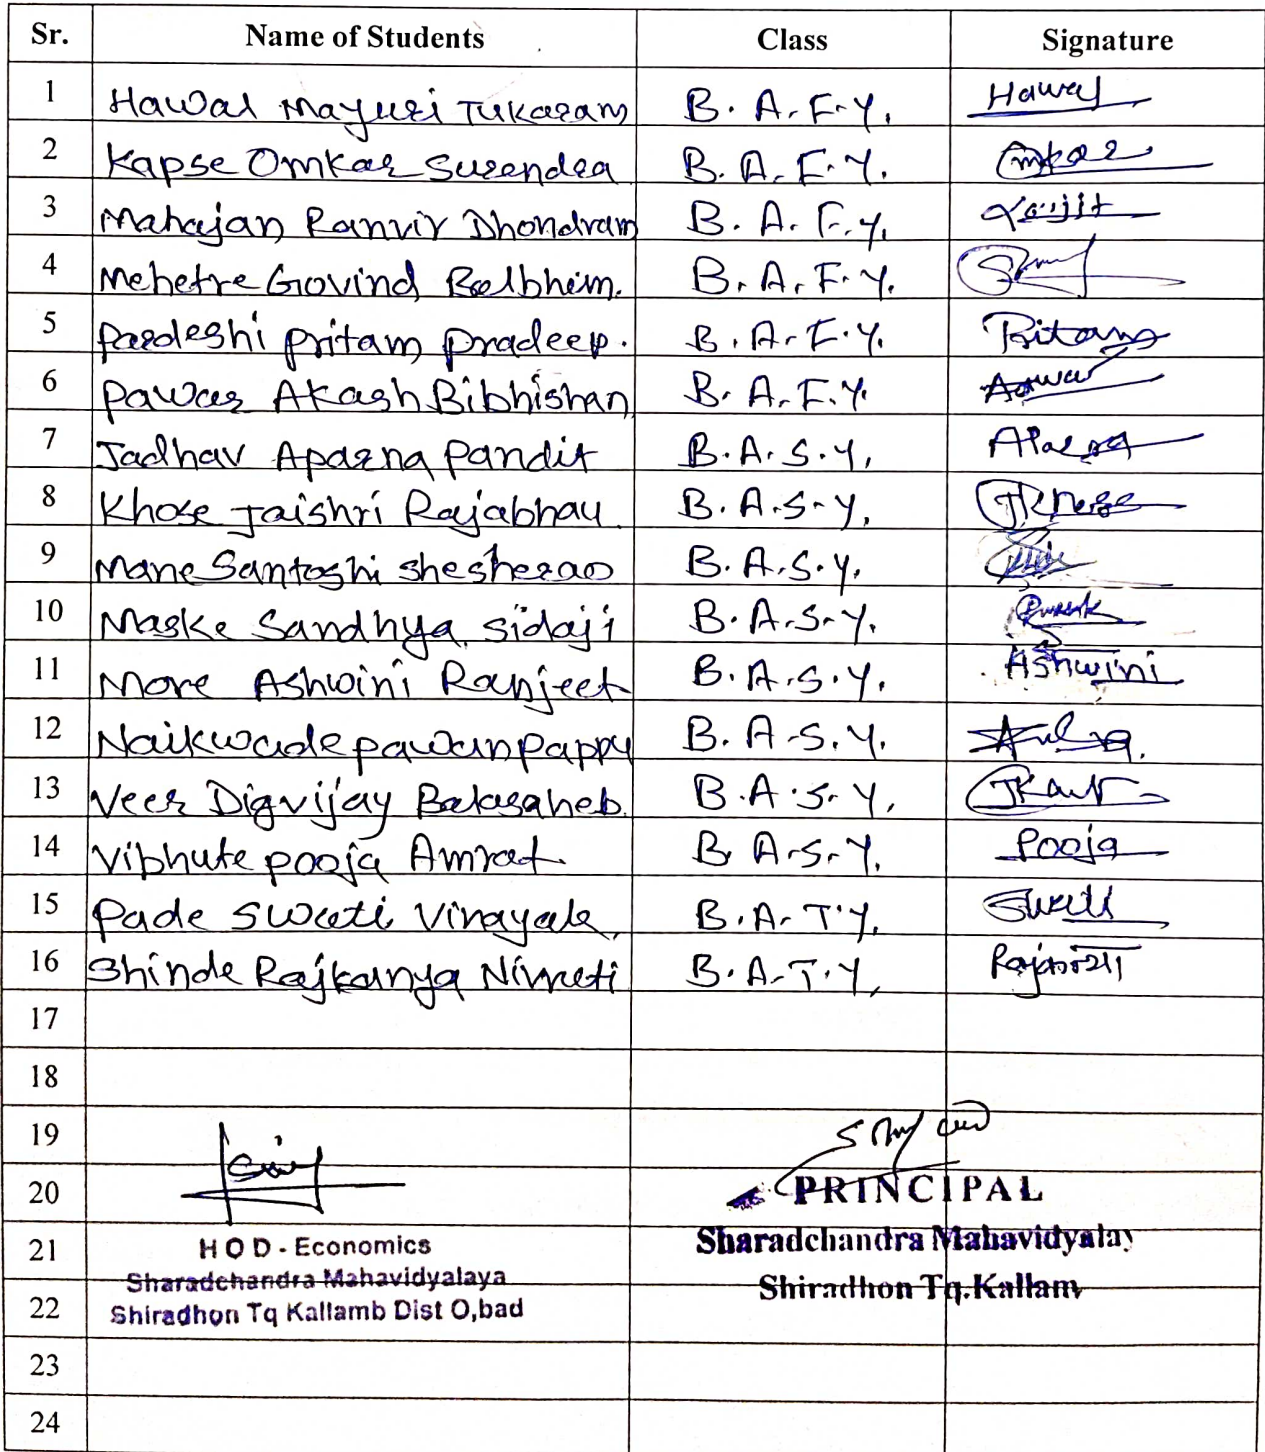 Sr. Name of Students Class Signature
1 Hawal Mayuri Tukaram B. A. F. Y. Hawal
2 Kapse Omkar Surendra B. A. F. Y. Omkar
3 Mahajan Ranvir Dhondram B. A. F. Y.
4 Mehetre Govind Balbhim. B. A. F. Y.
5 Pardeshi Pritam Pradeep. B. A. F. Y. Pritam
6 Pawar Akash Bibhishan B. A. F. Y.
7 Jadhav Aparna Pandit B. A. S. Y.
8 Khose Jaishri Rajabhau B. A. S. Y.
9 Mane Santoshi Shesherao B. A. S. Y.
10 Maske Sandhya Sidaji B. A. S. Y.
11 More Ashwini Ranjeet B. A. S. Y. Ashwini
12 Naikwade Pawan Pappu B. A. S. Y.
13 Veer Digvijay Balasaheb. B. A. S. Y.
14 Vibhute Pooja Amrat B. A. S. Y. Pooja
15 Pade Swati Vinayak B. A. T. Y. Swati
16 Shinde Rajkanya Nivruti B. A. T. Y.
17
18
19
20 PRINCIPAL
21 H O D - Economics Sharadchandra Mahavidyalay
Sharadchandra Mahavidyalaya Shiradhon Tq.Kallam
22 Shiradhon Tq Kallamb Dist O,bad
23
24